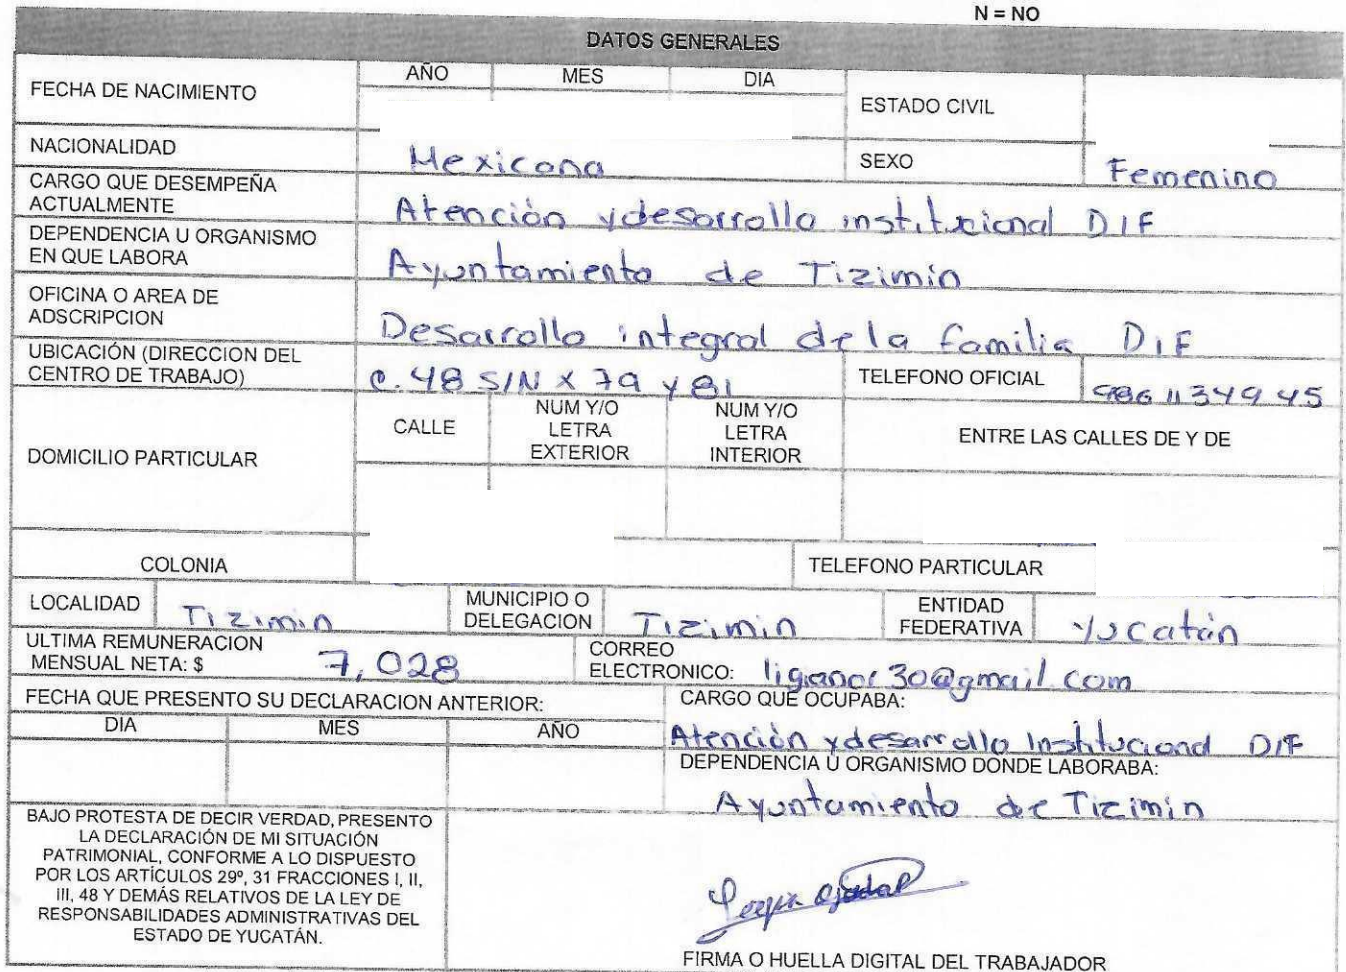 N = NO
DATOS GENERALES
FECHA DE NACIMIENTO AÑO MES DIA ESTADO CIVIL
NACIONALIDAD Mexicana SEXO Femenino
CARGO QUE DESEMPEÑA
ACTUALMENTE Atención y desarrollo institucional DIF
DEPENDENCIA U ORGANISMO
EN QUE LABORA Ayuntamiento de Tizimin
OFICINA O AREA DE
ADSCRIPCION Desarrollo integral de la familia DIF
UBICACIÓN (DIRECCION DEL
CENTRO DE TRABAJO) C. 48 S/N x 79 y 81 TELEFONO OFICIAL 986 11349 45
DOMICILIO PARTICULAR CALLE NUM Y/O
LETRA
EXTERIOR NUM Y/O
LETRA
INTERIOR ENTRE LAS CALLES DE Y DE
COLONIA TELEFONO PARTICULAR
LOCALIDAD Tizimin MUNICIPIO O
DELEGACION Tizimin ENTIDAD
FEDERATIVA Yucatán
ULTIMA REMUNERACION
MENSUAL NETA: $ 7,028 CORREO
ELECTRONICO: @gmail.com
FECHA QUE PRESENTO SU DECLARACION ANTERIOR: CARGO QUE OCUPABA:
DIA MES AÑO Atención y desarrollo Institucional DIF
DEPENDENCIA U ORGANISMO DONDE LABORABA:
Ayuntamiento de Tizimin
BAJO PROTESTA DE DECIR VERDAD, PRESENTO
LA DECLARACIÓN DE MI SITUACIÓN
PATRIMONIAL, CONFORME A LO DISPUESTO
POR LOS ARTÍCULOS 29º, 31 FRACCIONES I, II,
III, 48 Y DEMÁS RELATIVOS DE LA LEY DE
RESPONSABILIDADES ADMINISTRATIVAS DEL
ESTADO DE YUCATÁN.
FIRMA O HUELLA DIGITAL DEL TRABAJADOR